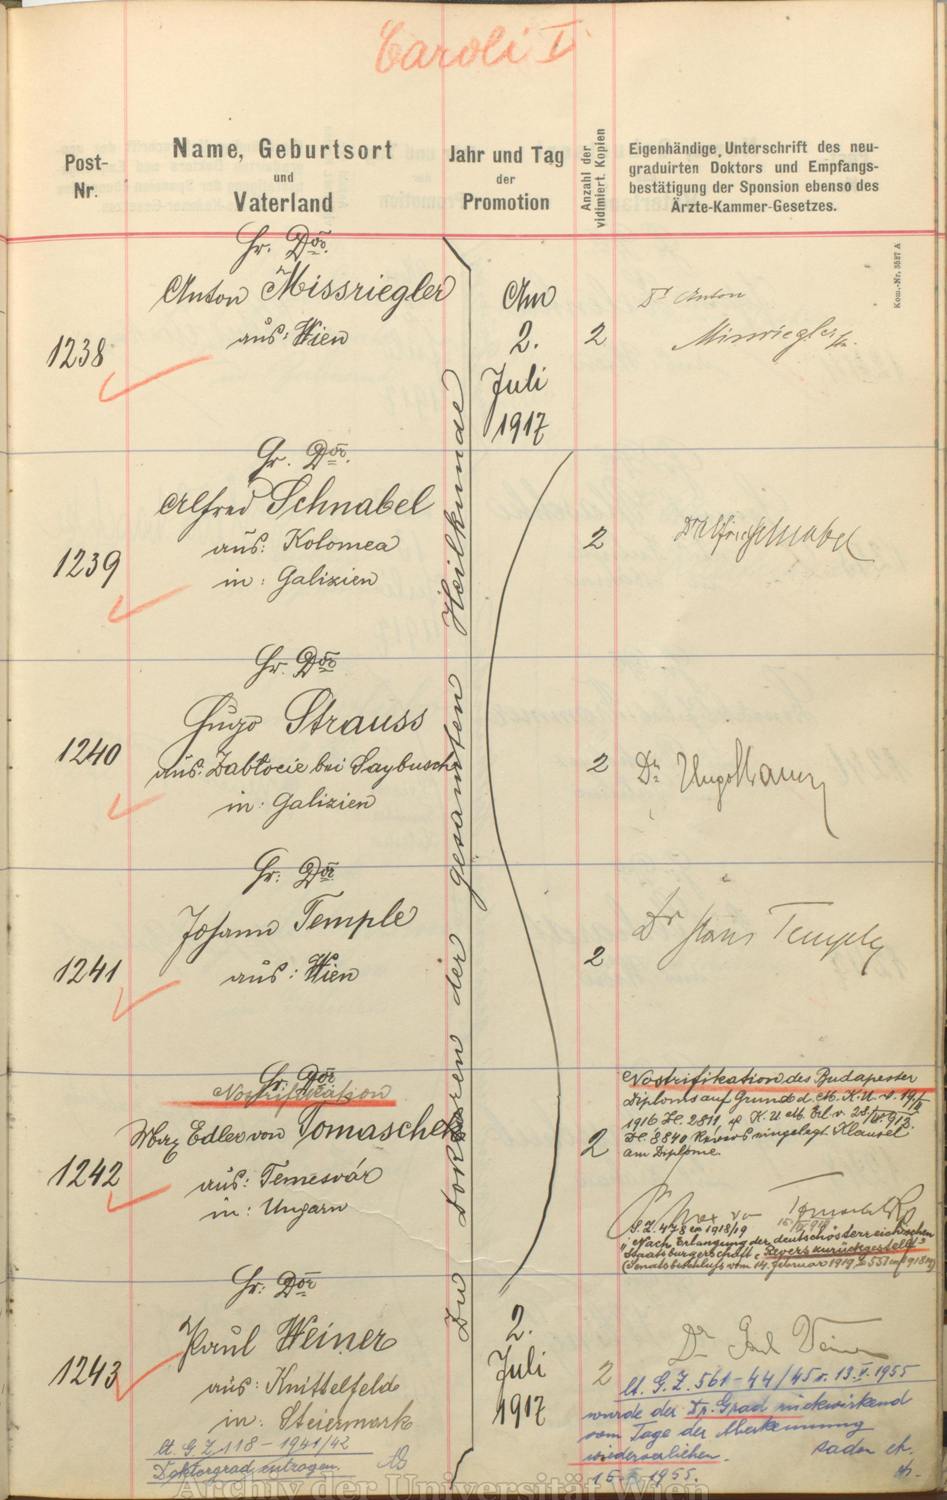 Caroli I
Post-
Nr.
Name, Geburtsort
und
Vaterland
Jahr und Tag
der
Promotion
Anzahl der
vidimiert. Kopien
Eigenhändige Unterschrift des neu-
graduirten Doktors und Empfangs-
bestätigung der Sponsion ebenso des
Ärzte-Kammer-Gesetzes.
Kom.-Nr. 5587 A
Zu Doktoren der gesamten Heilkunde
Hr. Dor.
Anton Missriegler
aus: Wien
1238
Am
2.
Juli
1917
2
Dr Anton
Missriegler
Hr. Dor.
Alfred Schnabel
aus: Kolomea
in: Galizien
1239
2
Dr Alfred Schnabel
Hr. Dor
Hugo Strauss
aus: Zabłocie bei Saybusch
in: Galizien
1240
2
Dr Hugo Strauss
Hr. Dor
Johann Temple
aus: Wien
1241
2
Dr Hans Temple
Hr. Dor
Nostrifikation
Max Edler von Tomaschek
aus: Temesvár
in: Ungarn
1242
2
Nostrifikation des Budapester
Diploms auf Grund d. M. K. U. v.
1916 Zl. 2811, K. U. M. Erl. v. 28/
Zl. 8840 Revers eingelegt. Klausel
am Diplome.
Max von
G. Z. 478 ex 1918/19
"Nach Erlangung der deutschösterreichischen
Staatsbürgerschaft, Revers zurückgestellt"
(Senatsbeschluss vom 14. Februar 1919
Hr. Dor
Paul Weiner
aus: Knittelfeld
in: Steiermark
1243
2.
Juli
1917
2
Dr Paul Weiner
lt. G. Z. 118 - 1941/42
Doktorgrad entzogen.
lt. G. Z. 561 - 44/45 v. 13. V. 1955
wurde der Dr. Grad rückwirkend
vom Tage der Aberkennung
wiederverliehen.
1955.
Archiv der Universität Wien